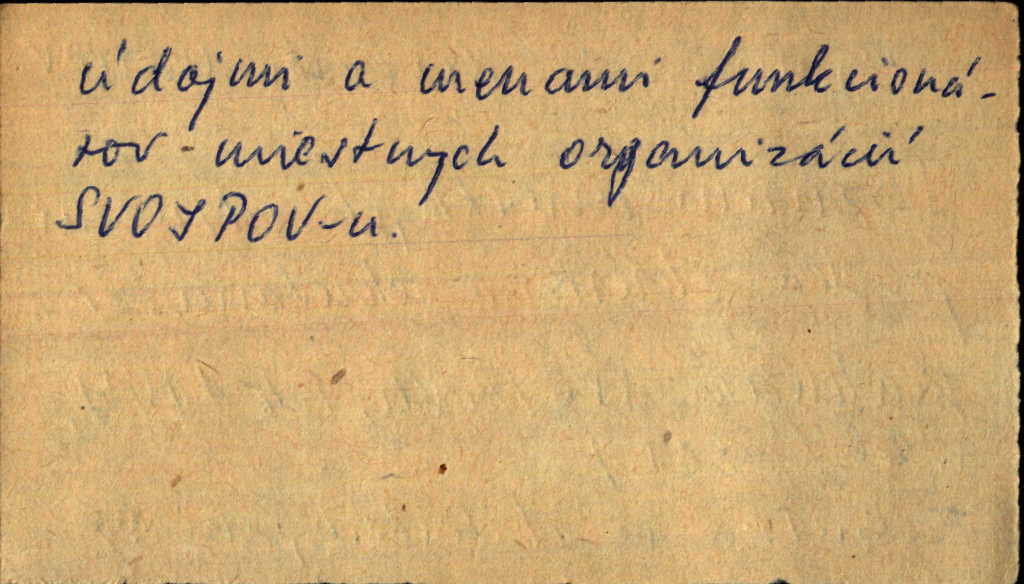 údajmi a menami funkcioná-
rov miestnych organizácií
SVOJPOV-u.